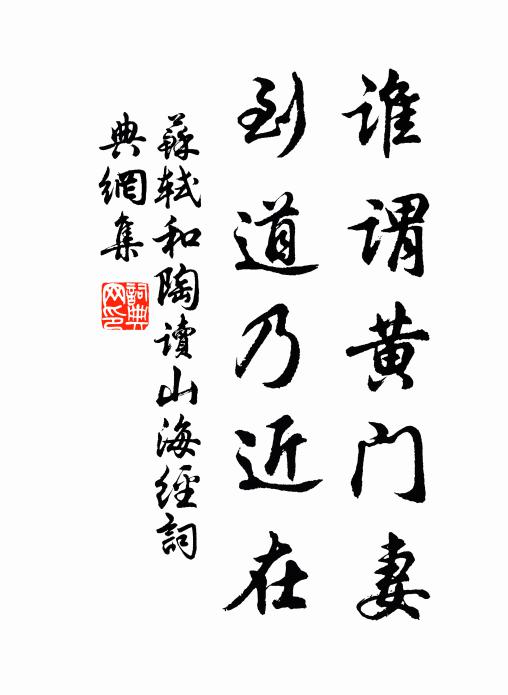 誰謂黄门妻
到道乃近在
蘇軾和陶讀山海經詞
典網集
詞典
网印